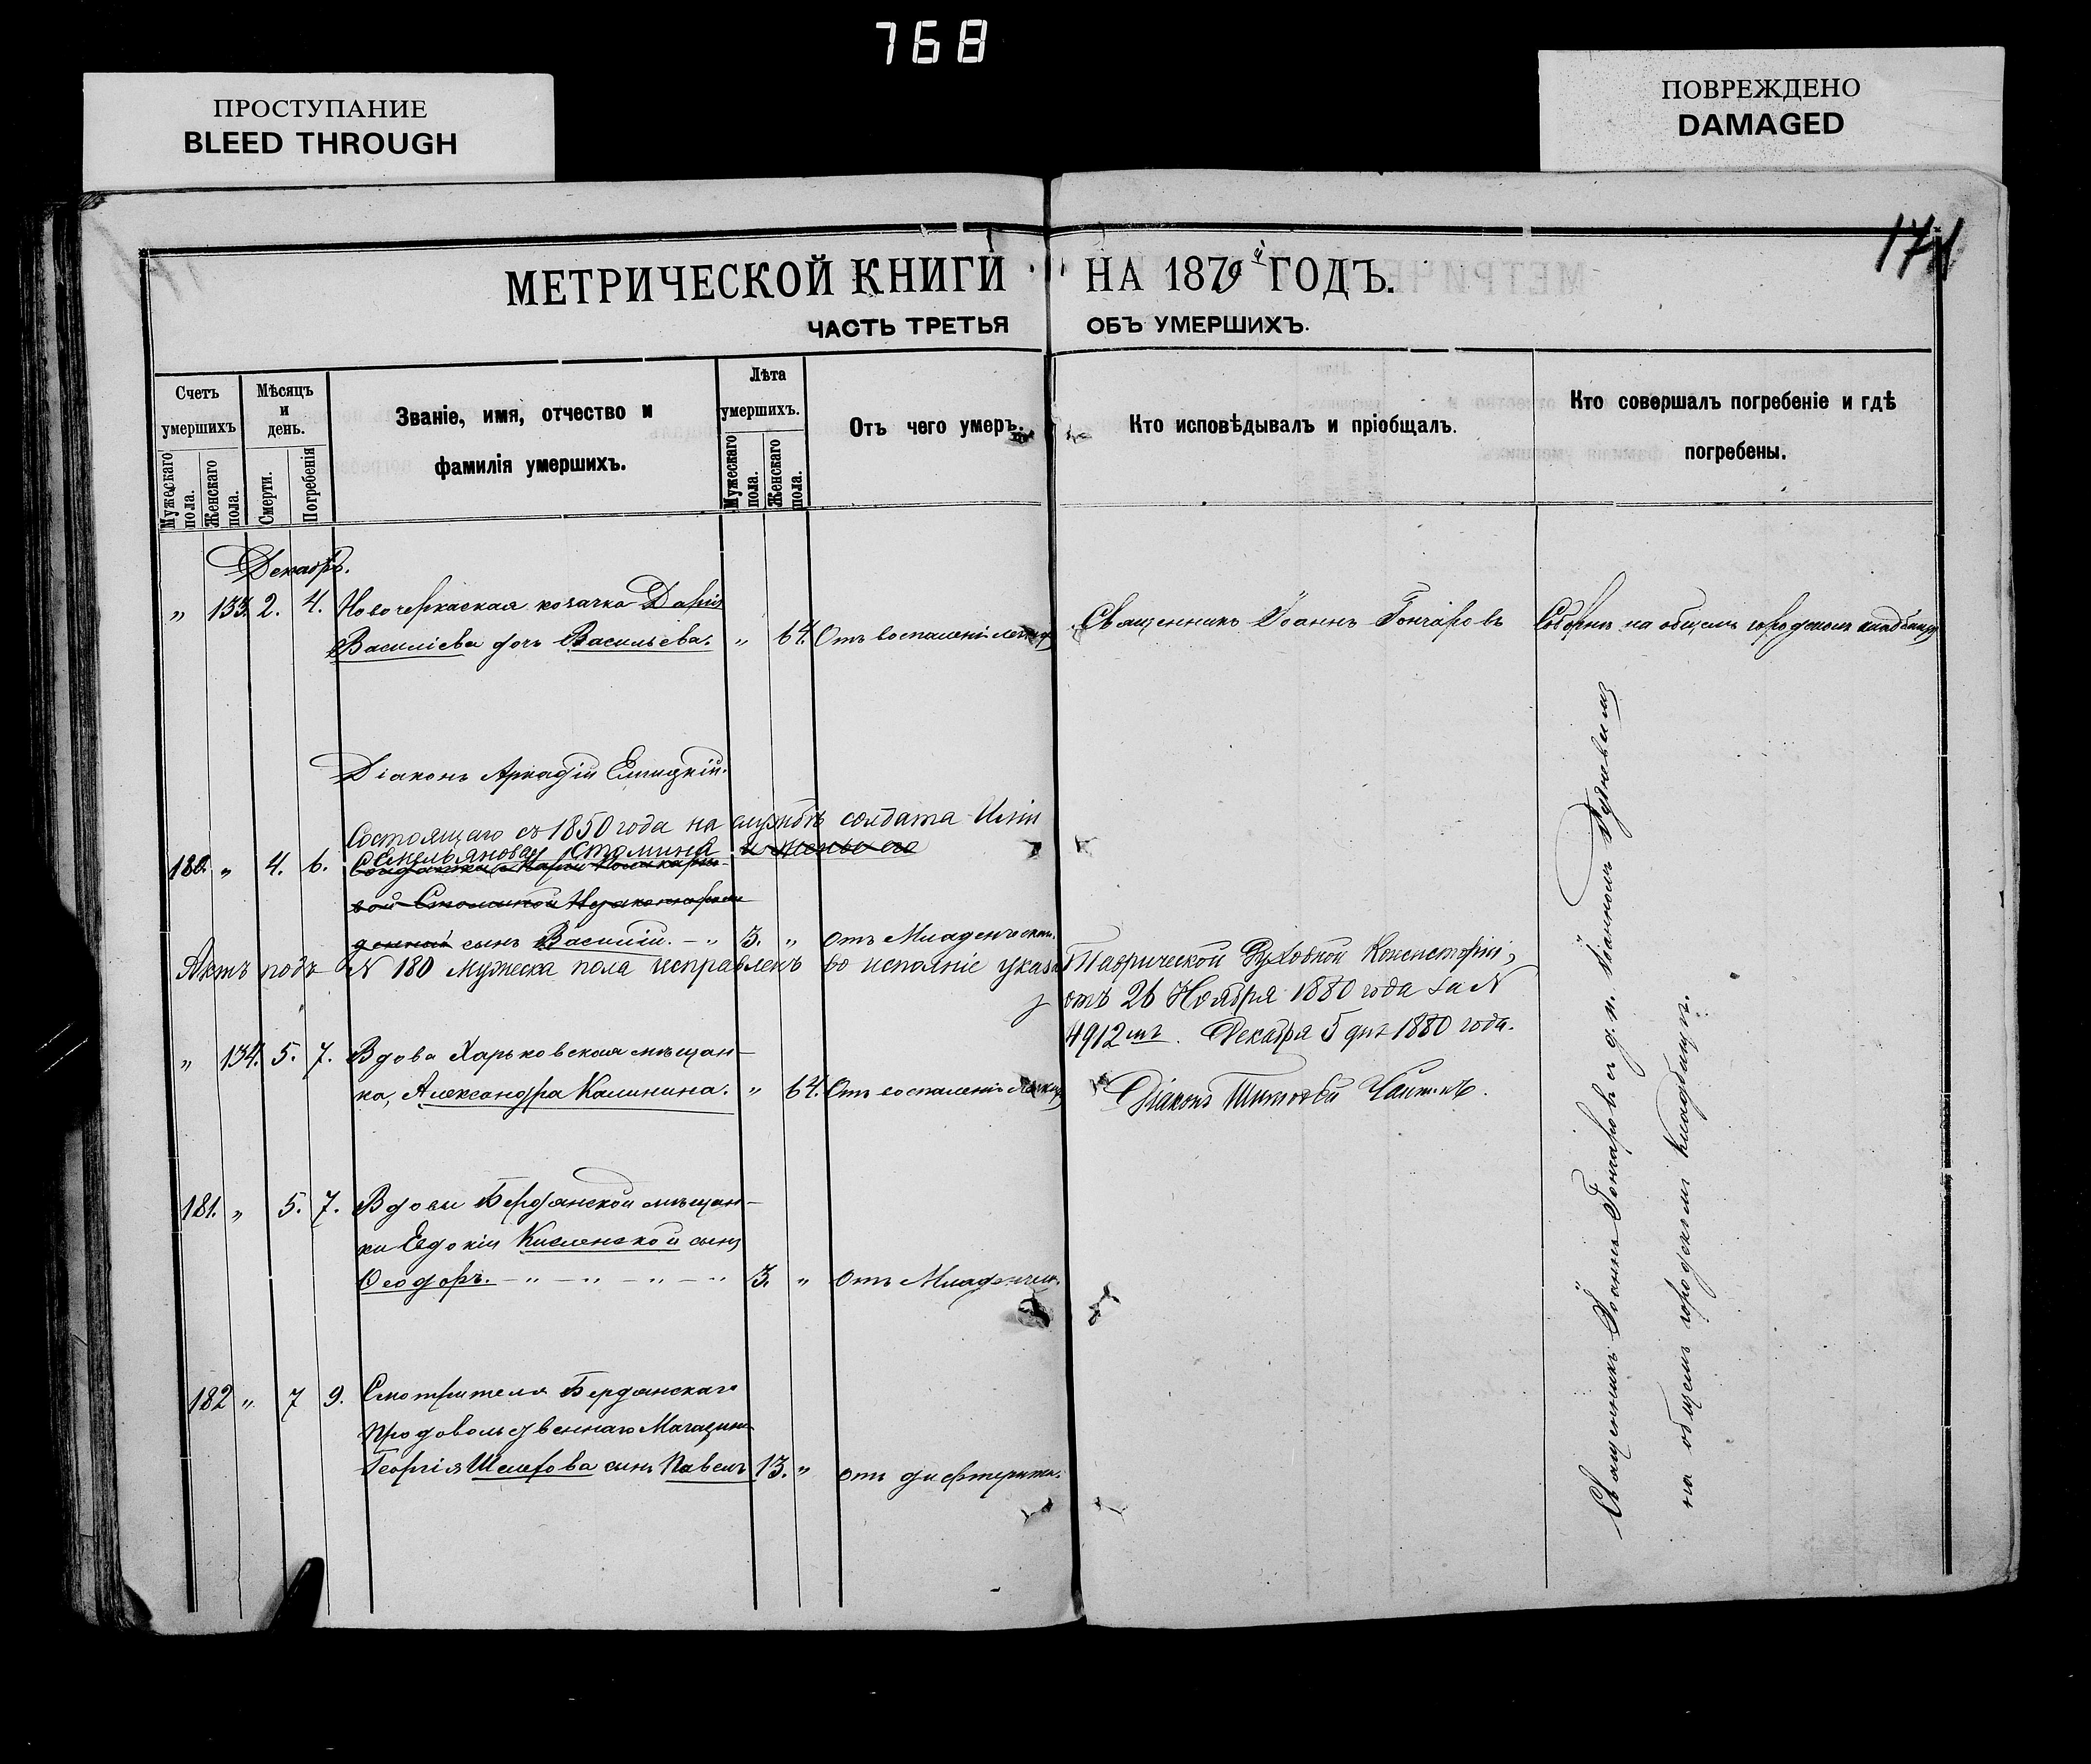 768
ПРОСТУПАНИЕ
BLEED THROUGH
ПОВРЕЖДЕНО
DAMAGED
МЕТРИЧЕСКОЙ КНИГИ НА 1879й ГОДЪ.
ЧАСТЬ ТРЕТЬЯ ОБЪ УМЕРШИХЪ.
Счетъ умершихъ
Мужескаго пола.
Женскаго пола.
Мѣсяцъ и день.
Смерти.
Погребенія
Званіе, имя, отчество и
фамилія умершихъ.
Лѣта умершихъ.
Мужескаго пола.
Женскаго пола.
Отъ чего умеръ.
Кто исповѣдывалъ и пріобщалъ.
Кто совершалъ погребеніе и гдѣ
погребены.
Декабрь.
„ 133. 2. 4. Новочеркаская козачка Дарія Священникъ Іоаннъ Гончаровъ
Василіева дочь Васильева. „ 64. Отъ воспаленія на общемъ городскомъ
Діаконъ Аркадій
Состоящаго съ 1850 года на службѣ солдата Иліи
Емельянова Стомина и жены его
180. „ 4. 6.
сынъ Василій. – „ 3. „ отъ
Актъ подъ N 180 мужеска пола исправленъ во исполніе указа Таврической Духовной Консисторіи,
отъ 26 Ноября 1880 года за N
4912мъ. Декабря 5 дня 1880 года.
„ 134. 5. 7. Вдова Харьковская мѣщан–
ка, Александра Калинина. „ 64. Отъ воспаленія
Діаконъ
181. „ 5. 7. Вдовы Бердянской мѣщан–
ки Евдокіи сынъ
Ѳеодоръ. – „ – „ – „ – „ 3. „ отъ
182 „ 7 9. Смотрителя Бердянскаго
продовольственнаго Магазина
Георгія сынъ Павелъ 13. „ отъ дифтерита.
Священникъ Іоаннъ Гончаровъ съ д. н. Іоанномъ
на общемъ городскомъ кладбищѣ.